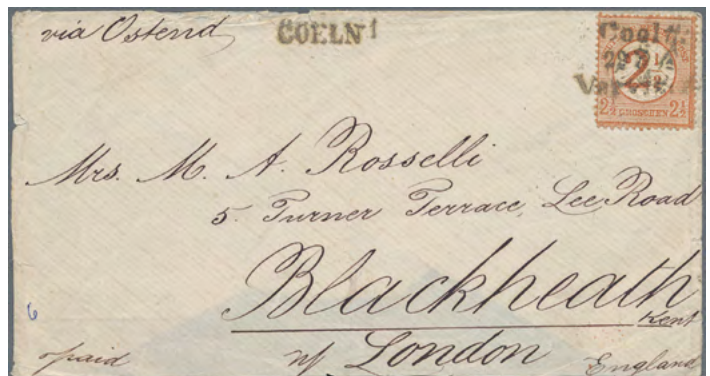 via Ostend
COELN 1
Coeln
2½
2½ GROSCHEN 2½
Mrs. M. A. Rosselli
5. Turner Terrace, Lee Road
Blackheath
Kent
6
paid
nr London
England